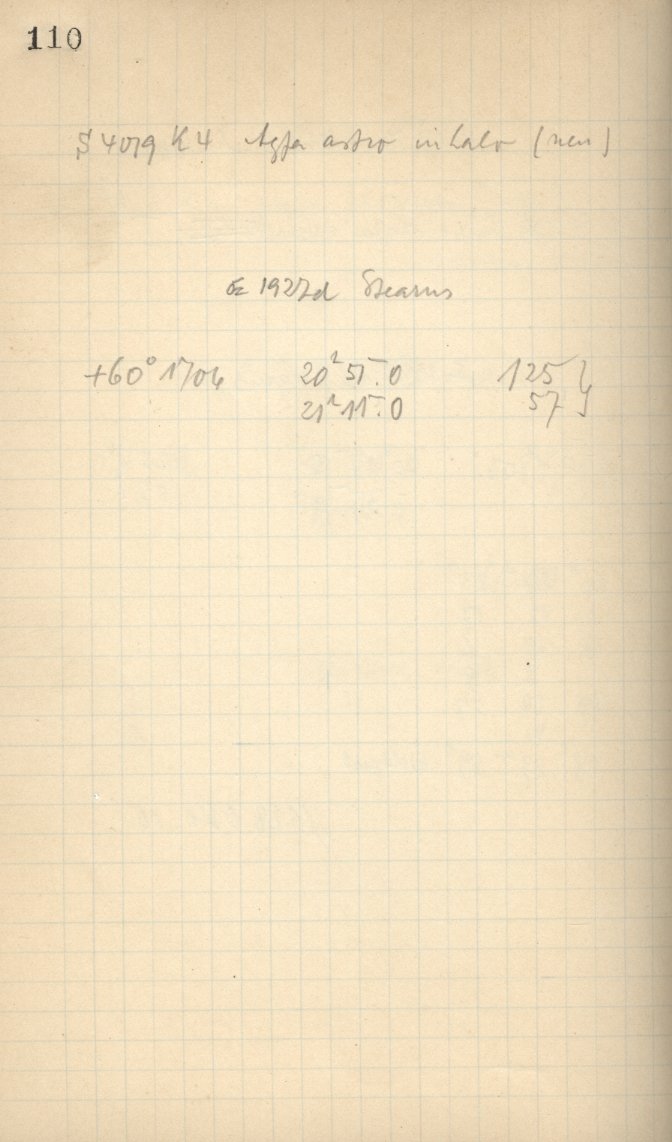 110
S 4079 K4 Agfa astro inhalo (neu)
1927d Stearns
+60° 1706 20ʰ 51.0 125 }
21ʰ 11.0 57 }